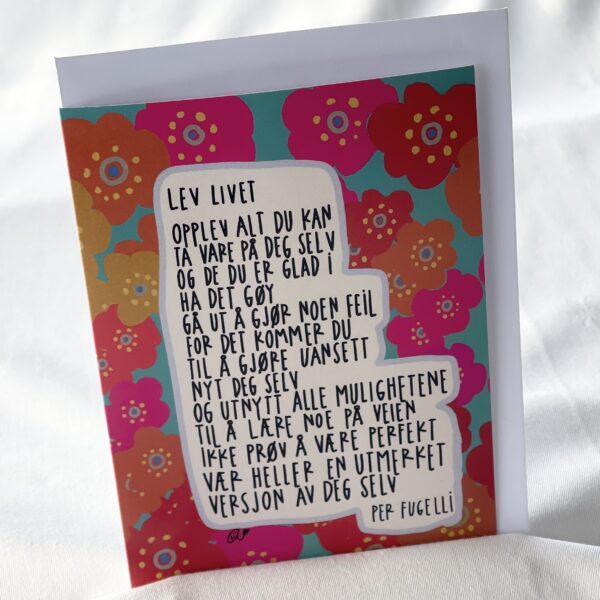 LEV LIVET
OPPLEV ALT DU KAN
TA VARE PÅ DEG SELV
OG DE DU ER GLAD I
HA DET GØY
GÅ UT Å GJØR NOEN FEIL
FOR DET KOMMER DU
TIL Å GJØRE UANSETT
NYT DEG SELV
OG UTNYTT ALLE MULIGHETENE
TIL Å LÆRE NOE PÅ VEIEN
IKKE PRØV Å VÆRE PERFEKT
VÆR HELLER EN UTMERKET
VERSJON AV DEG SELV
PER FUGELLI